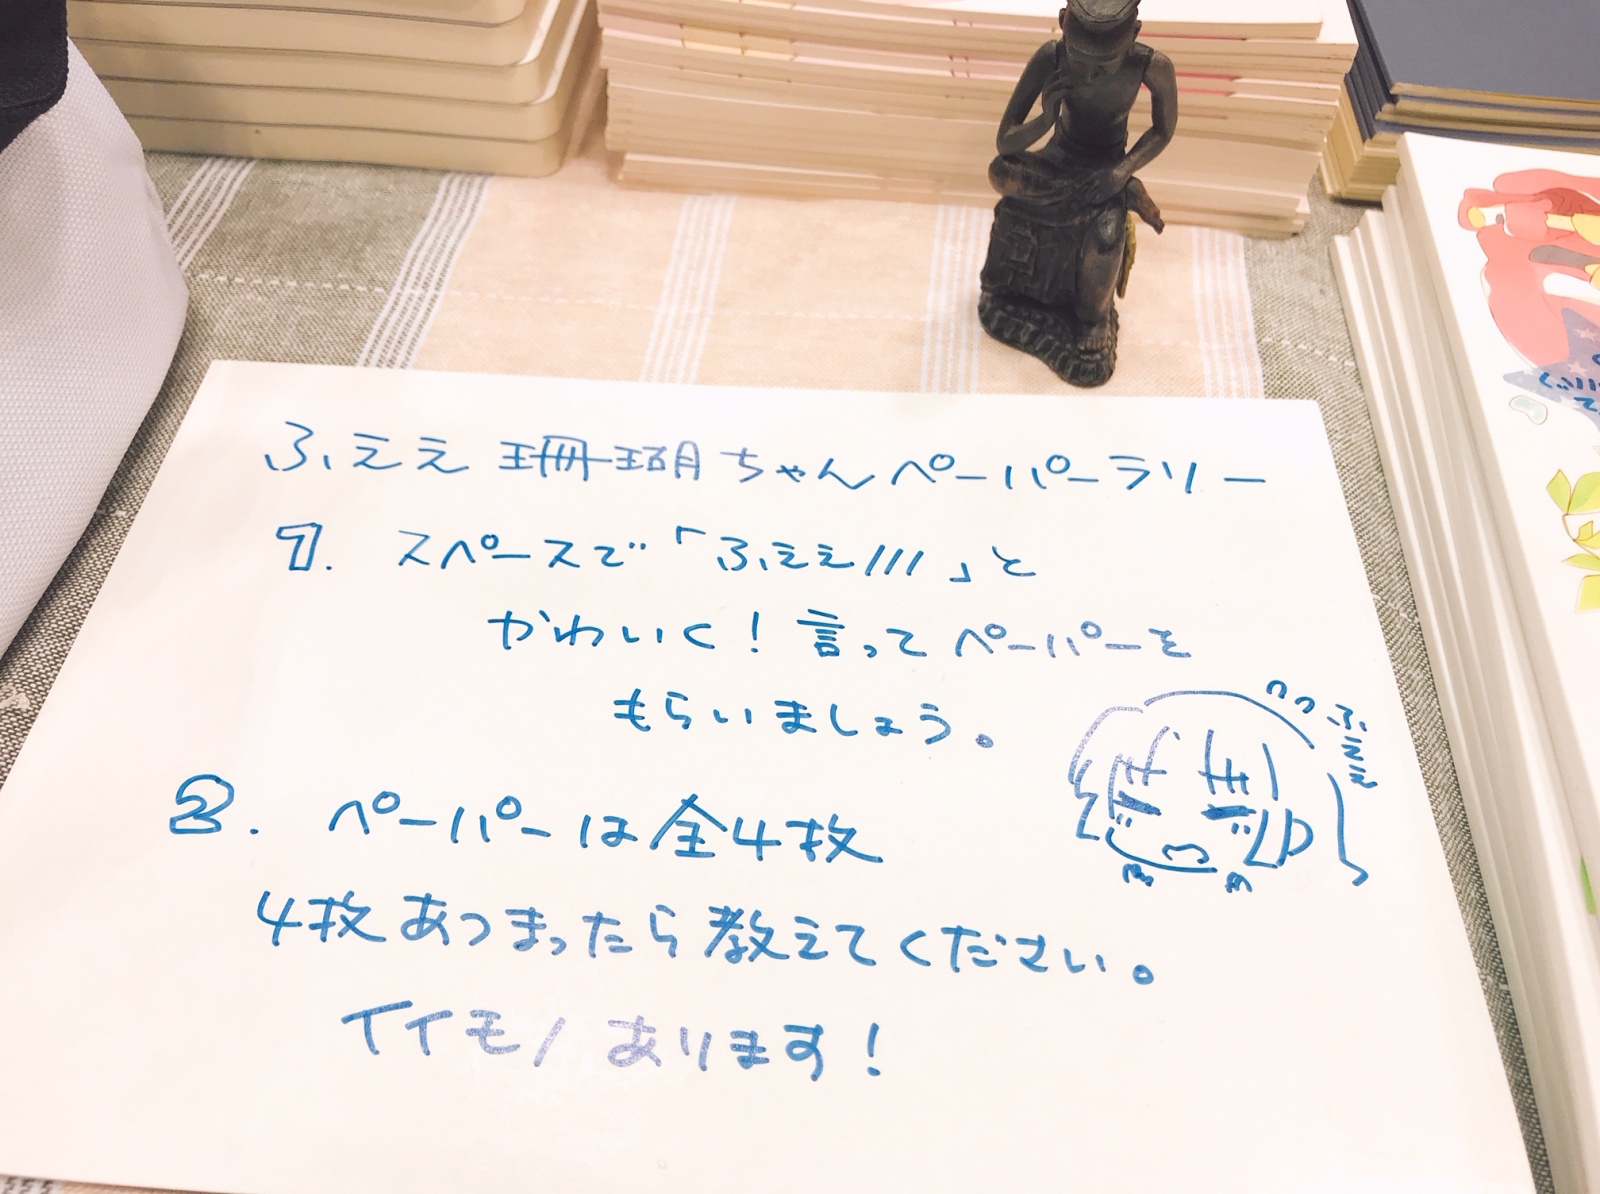 ふええ珊瑚ちゃんペーパーラリー
1. スペースで「ふええ///」と
かわいく！言ってペーパーを
もらいましょう。
2. ペーパーは全4枚
4枚あつまったら教えてください。
イイモノあります！